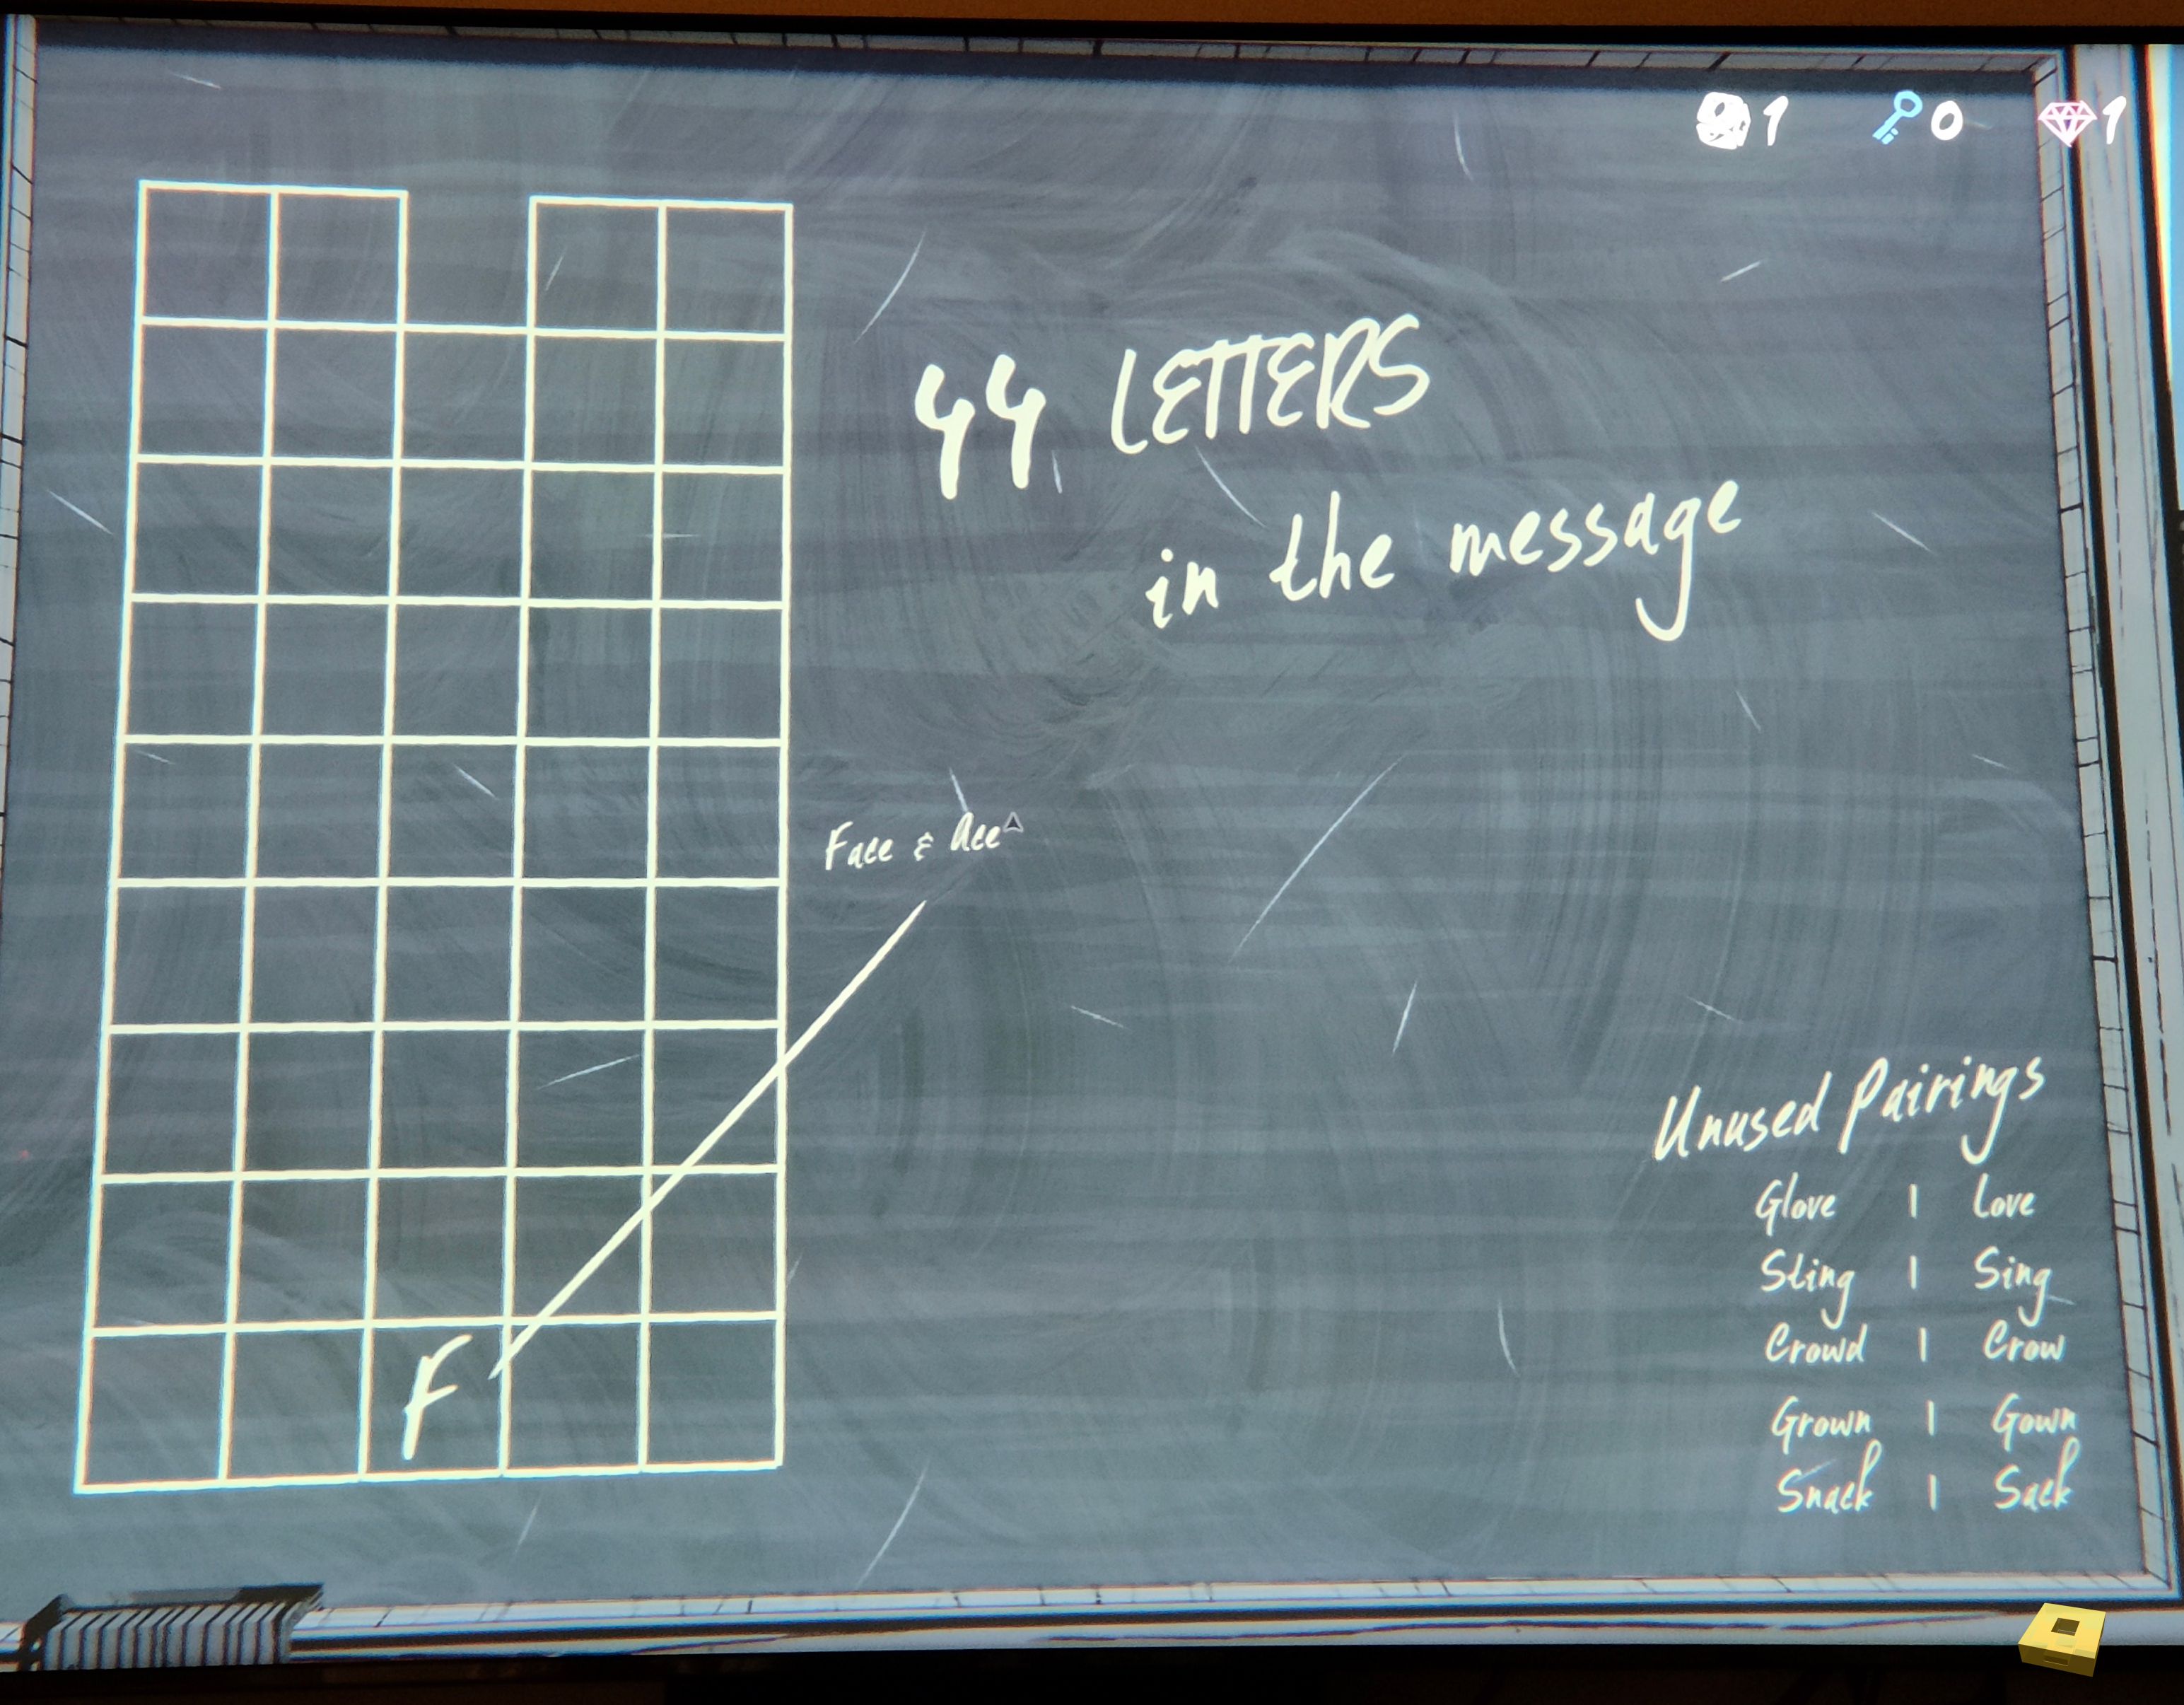 1 0 1
44 LETTERS
in the message
Face & Ace
F
Unused Pairings
Glove | Love
Sting | Sing
Crowd | Crow
Grown | Gown
Snack | Sack